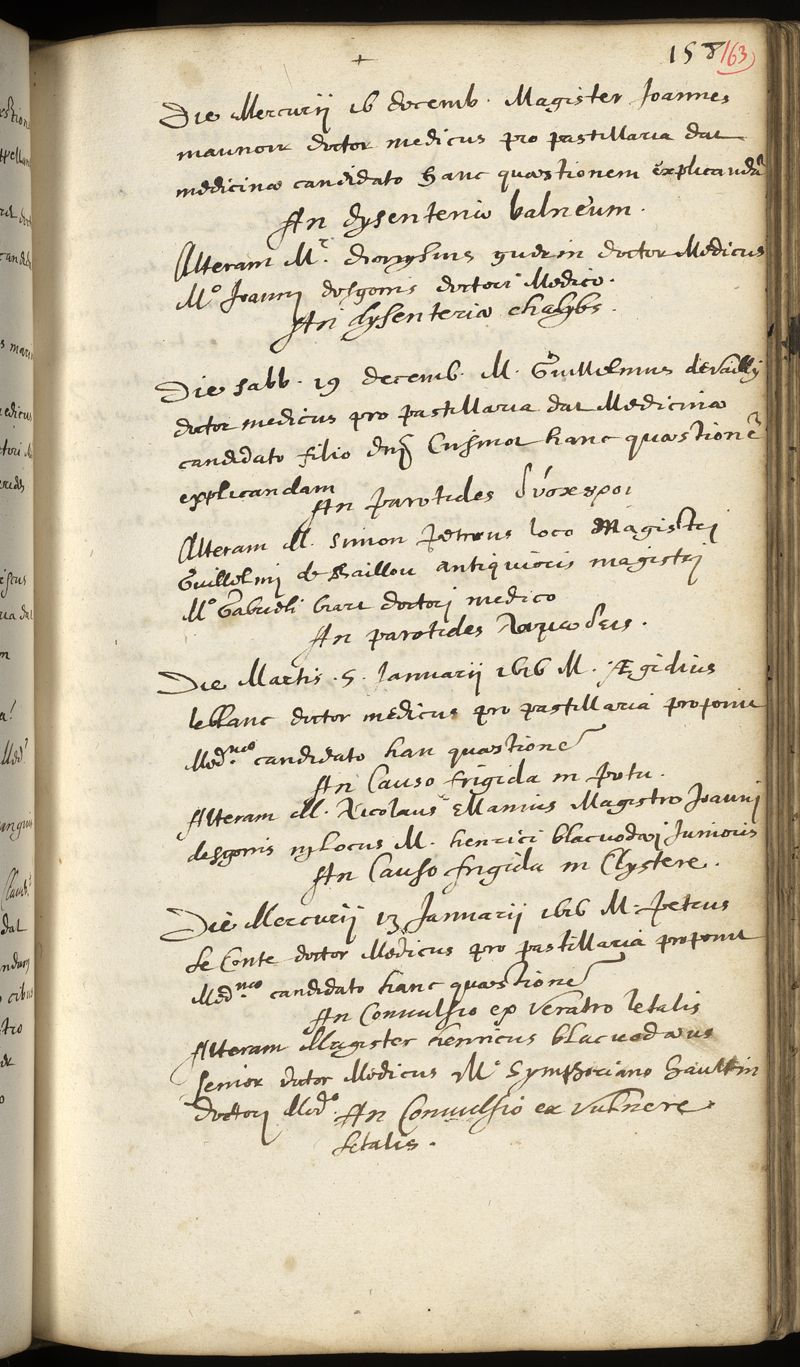 +
158 163
Die Mercurii 16 decemb. Magister Joannes
maunoir doctor medicus pro pastillaria dat
medicinæ candidato hanc quæstionem explicandã
An dysenteriæ balneum.
Alteram Mr. dionysius guerin doctor Medicus
Mo Joanni desgorris doctori Medico.
An dysenteriæ chalybs.
Die sabb. 19 decemb. M. Guillelmus devailly
doctor medicus pro pastillaria dat Medicinæ
candidato filio dni Cusinot hanc quæstionẽ
explicandam
An parotides
Alteram M. Simon Petreus loco Magistri
Guillelmi de Baillou antiquioris magistri
Mo Gabrieli biart doctori medico
An parotides
Die Martis .5. Januarii 1616 M. Ægidius
leblanc doctor medicus pro pastillaria proponit
Med.næ candidato hanc quæstionẽ
An Causo frigida in potu.
Alteram M. Nicolaus Ellanius Magistro Joanni
desgorris in locus M. henrici blacvodæi Junioris
An Causo frigida in Clystere.
Die Mercurii 13 Januarii 1616 M. Petrus
le Conte doctor Medicus pro pastillaria proponit
Med.næ candidato hanc quæstionẽ
An Convulsio ex veratro letalis
Alteram Magister henricus blacvodæus
senior doctor Medicus Mo Symphoriano hautin
doctori Medo. An Convulsio ex vulnere
letalis.